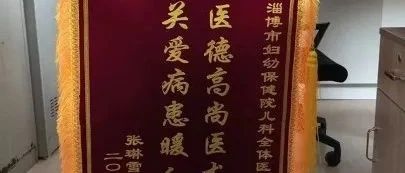 淄博市妇幼保健院儿科全体医
医德高尚医
关爱病患暖
张琳雪
二〇